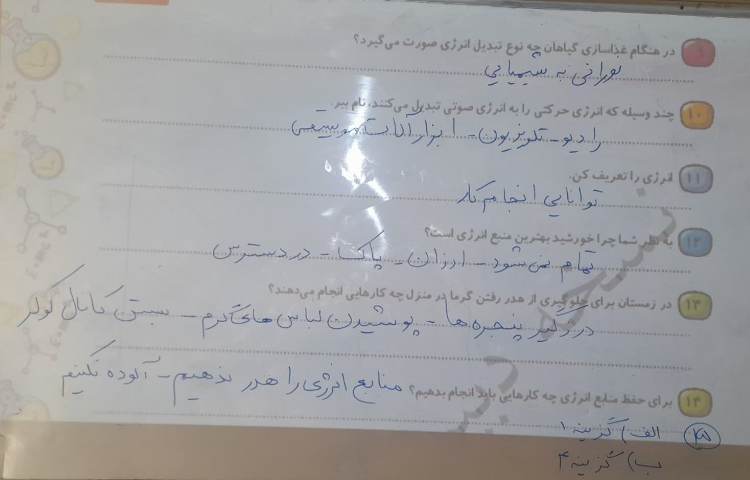 ۹ در هنگام غذاسازی گیاهان چه نوع تبدیل انرژی صورت می‌گیرد؟
نورانی به شیمیایی
۱۰ چند وسیله که انرژی حرکتی را به انرژی صوتی تبدیل می‌کنند، نام ببر.
رادیو - تلویزیون - ابزار آلات موسیقی
۱۱ انرژی را تعریف کن.
توانایی انجام کار
۱۲ به نظر شما چرا خورشید بهترین منبع انرژی است؟
تمام نمی شود - ارزان - پاک - در دسترس
۱۳ در زمستان برای جلوگیری از هدر رفتن گرما در منزل چه کارهایی انجام می‌دهند؟
درزگیر پنجره ها - پوشیدن لباس های گرم - بستن کانال کولر
۱۴ برای حفظ منابع انرژی چه کارهایی باید انجام بدهیم؟ منابع انرژی را هدر ندهیم - آلوده نکنیم
الف) گزینه ۱
ب) گزینه ۴